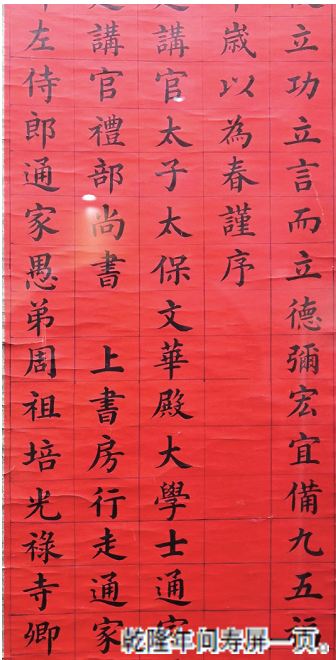 立功立言而立德彌宏宜備九五福
歲以為春謹序
講官太子太保文華殿大學士通家
講官禮部尚書 上書房行走通家
左侍郎通家愚弟周祖培光祿寺卿
乾隆年间寿屏一页。